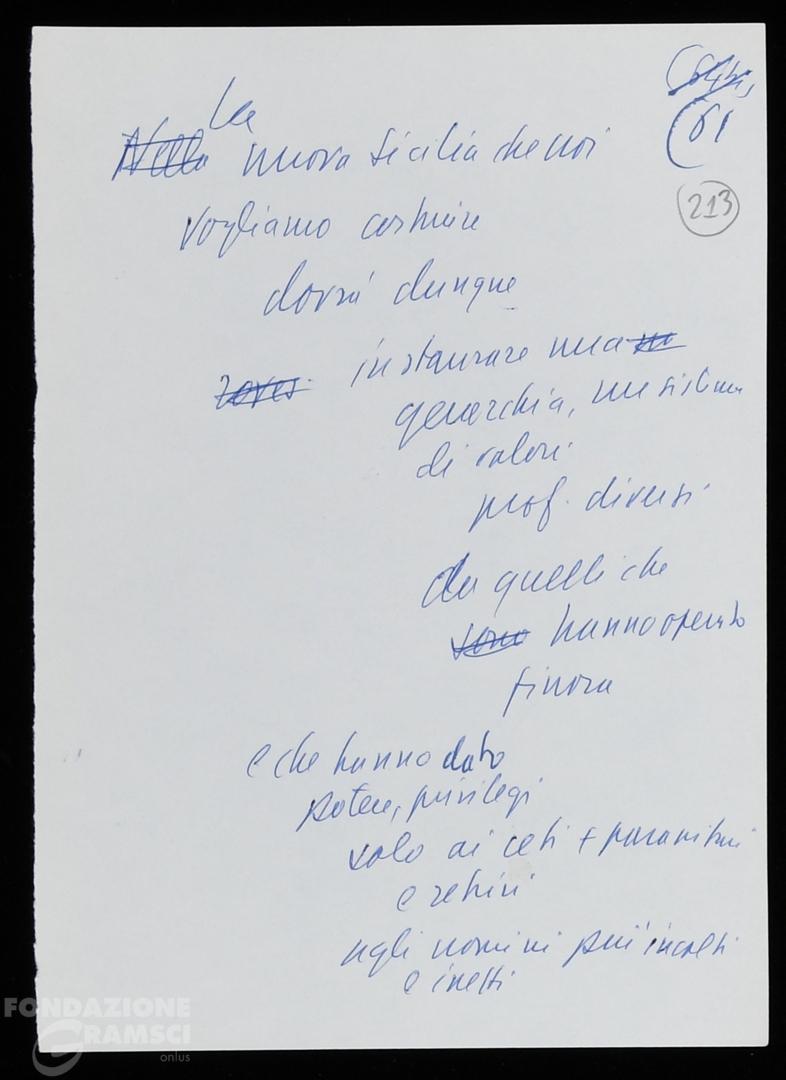 La
(61
Nella nuova Sicilia che noi
213
vogliamo costruire
dovrà dunque
instaurare una
gerarchia, un sistema
di valori
prof. diversi
da quelli che
sono hanno operato
finora
e che hanno dato
potere, privilegi
solo ai ceti + parassitari
e retrivi
agli uomini più incolti
e inetti
FONDAZIONE
GRAMSCI
onlus